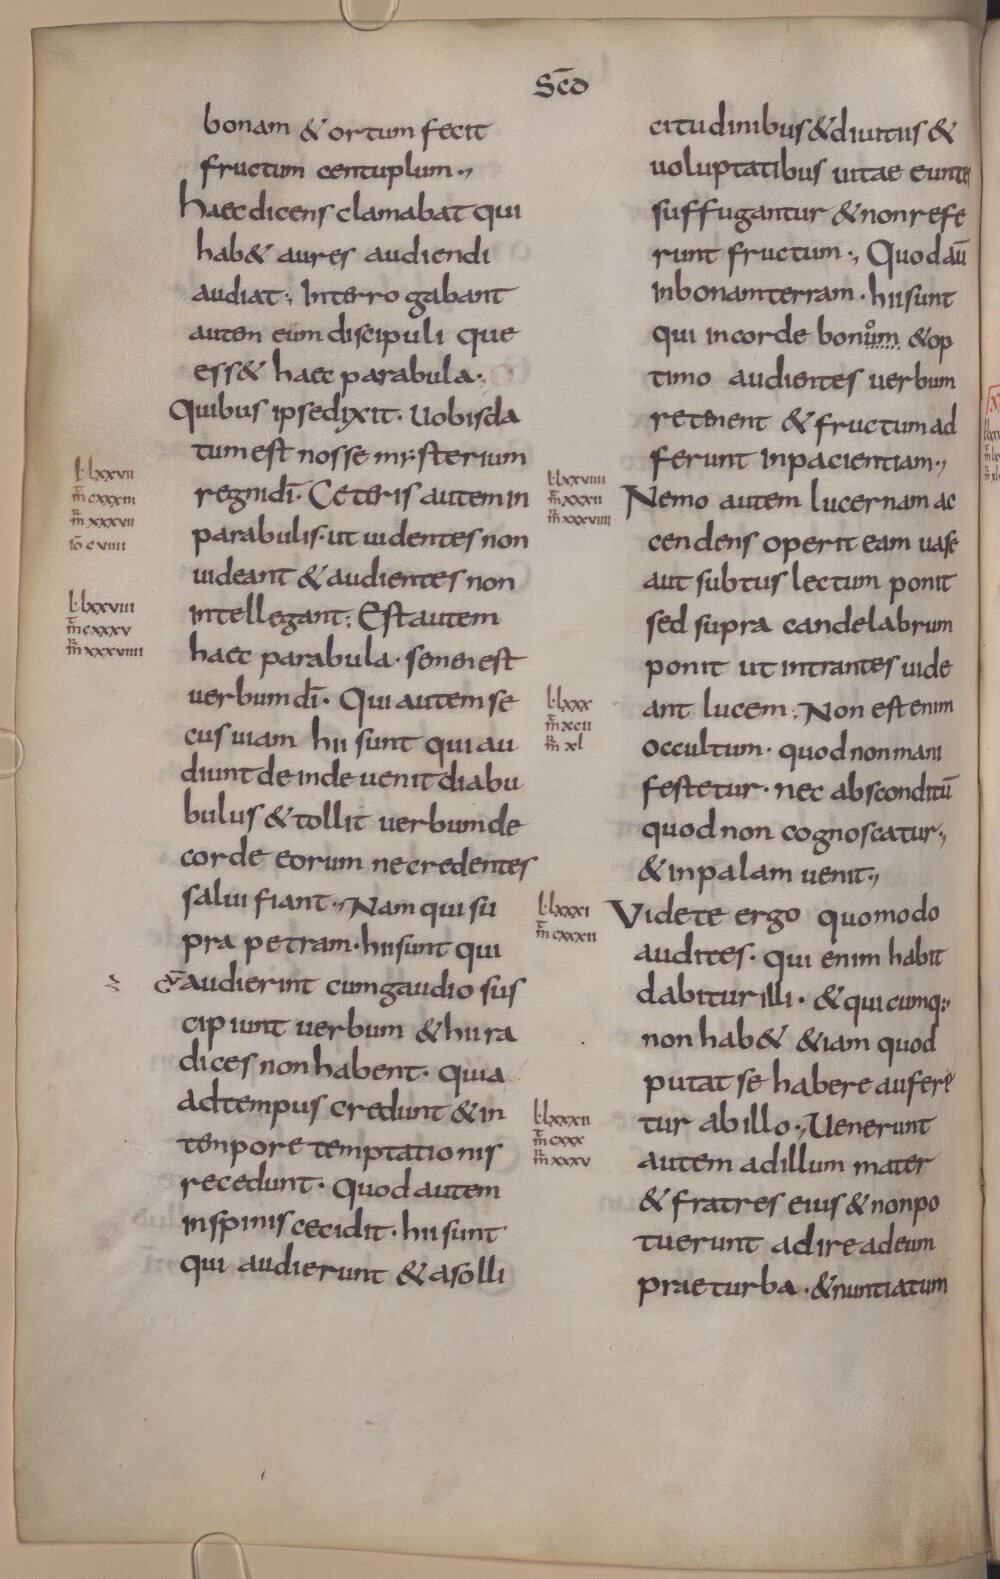 Scd̄
bonam & ortum fecit
fructum centuplum.,
haec dicens clamabat qui
hab& aures audiendi
audiat; Interrogabant
autem eum discipuli que
ess& haec parabula.,
Quibus ipse dixit. Uobis da
tum est nosse mysterium
l. lxxvii
m̄ cxxxiii
m̄ xxxvii
iō cviiii
regni dī. Ceteris autem in
parabulis. ut uidentes non
uideant & audientes non
l. lxxviii
m̄ cxxxv
m̄ xxxviiii
intellegant; Est autem
haec parabula. semen est
uerbum dī. Qui autem se
cus uiam hii sunt qui au
diunt deinde uenit diabu
bulus & tollit uerbum de
corde eorum ne credentes
salui fiant., Nam qui su
pra petram. hii sunt qui
audierint cum gaudio sus
cipiunt uerbum & hii ra
dices non habent. quia
ad tempus credunt & in
tempore temptationis
recedunt. Quod autem
in spinis cecidit. hii sunt
qui audierunt & a solli
citudinibus & diuitiis &
uoluptatibus uitae euntes
suffugantur & non refe
runt fructum., Quod aū
in bonam terram. hii sunt
qui in corde bonuom & op
timo audientes uerbum
retenent & fructum ad
ferunt in pacientiam.,
l. lxxviiii
m̄ xxxii
m̄ xxxviiii
Nemo autem lucernam ac
cendens operit eam uase
aut subtus lectum ponit
sed supra candelabrum
ponit ut intrantes uide
l. lxxx
m̄ xcii
m̄ xl
ant lucem; Non est enim
occultum. quod non mani
festetur. nec absconditū
quod non cognoscatur.,
& in palam uenit.,
l. lxxxi
m̄ cxxxii
Videte ergo quomodo
audites. qui enim habit
dabitur illi. & quicumq;
non hab& &iam quod
putat se habere aufere
l. lxxxii
m̄ cxxx
m̄ xxxv
tur ab illo., Uenerunt
autem ad illum mater
& fratres eius & non po
tuerunt adire ad eum
prae turba. & nuntiatum